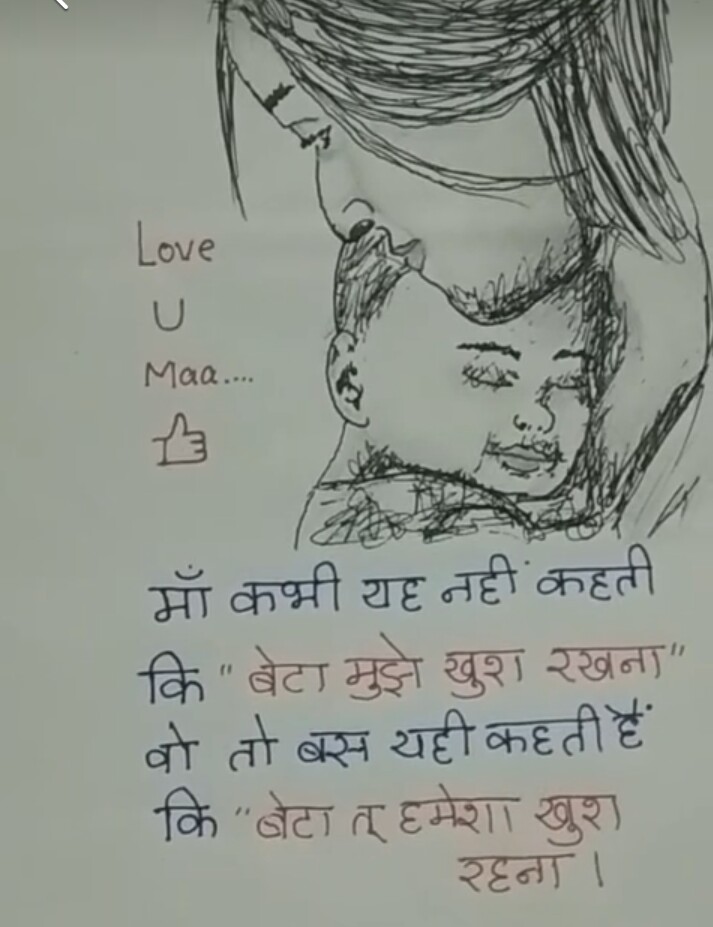 Love
U
Maa....
माँ कभी यह नहीं कहती
कि "बेटा मुझे खुश रखना"
वो तो बस यही कहती हैं
कि "बेटा तू हमेशा खुश
रहना ।